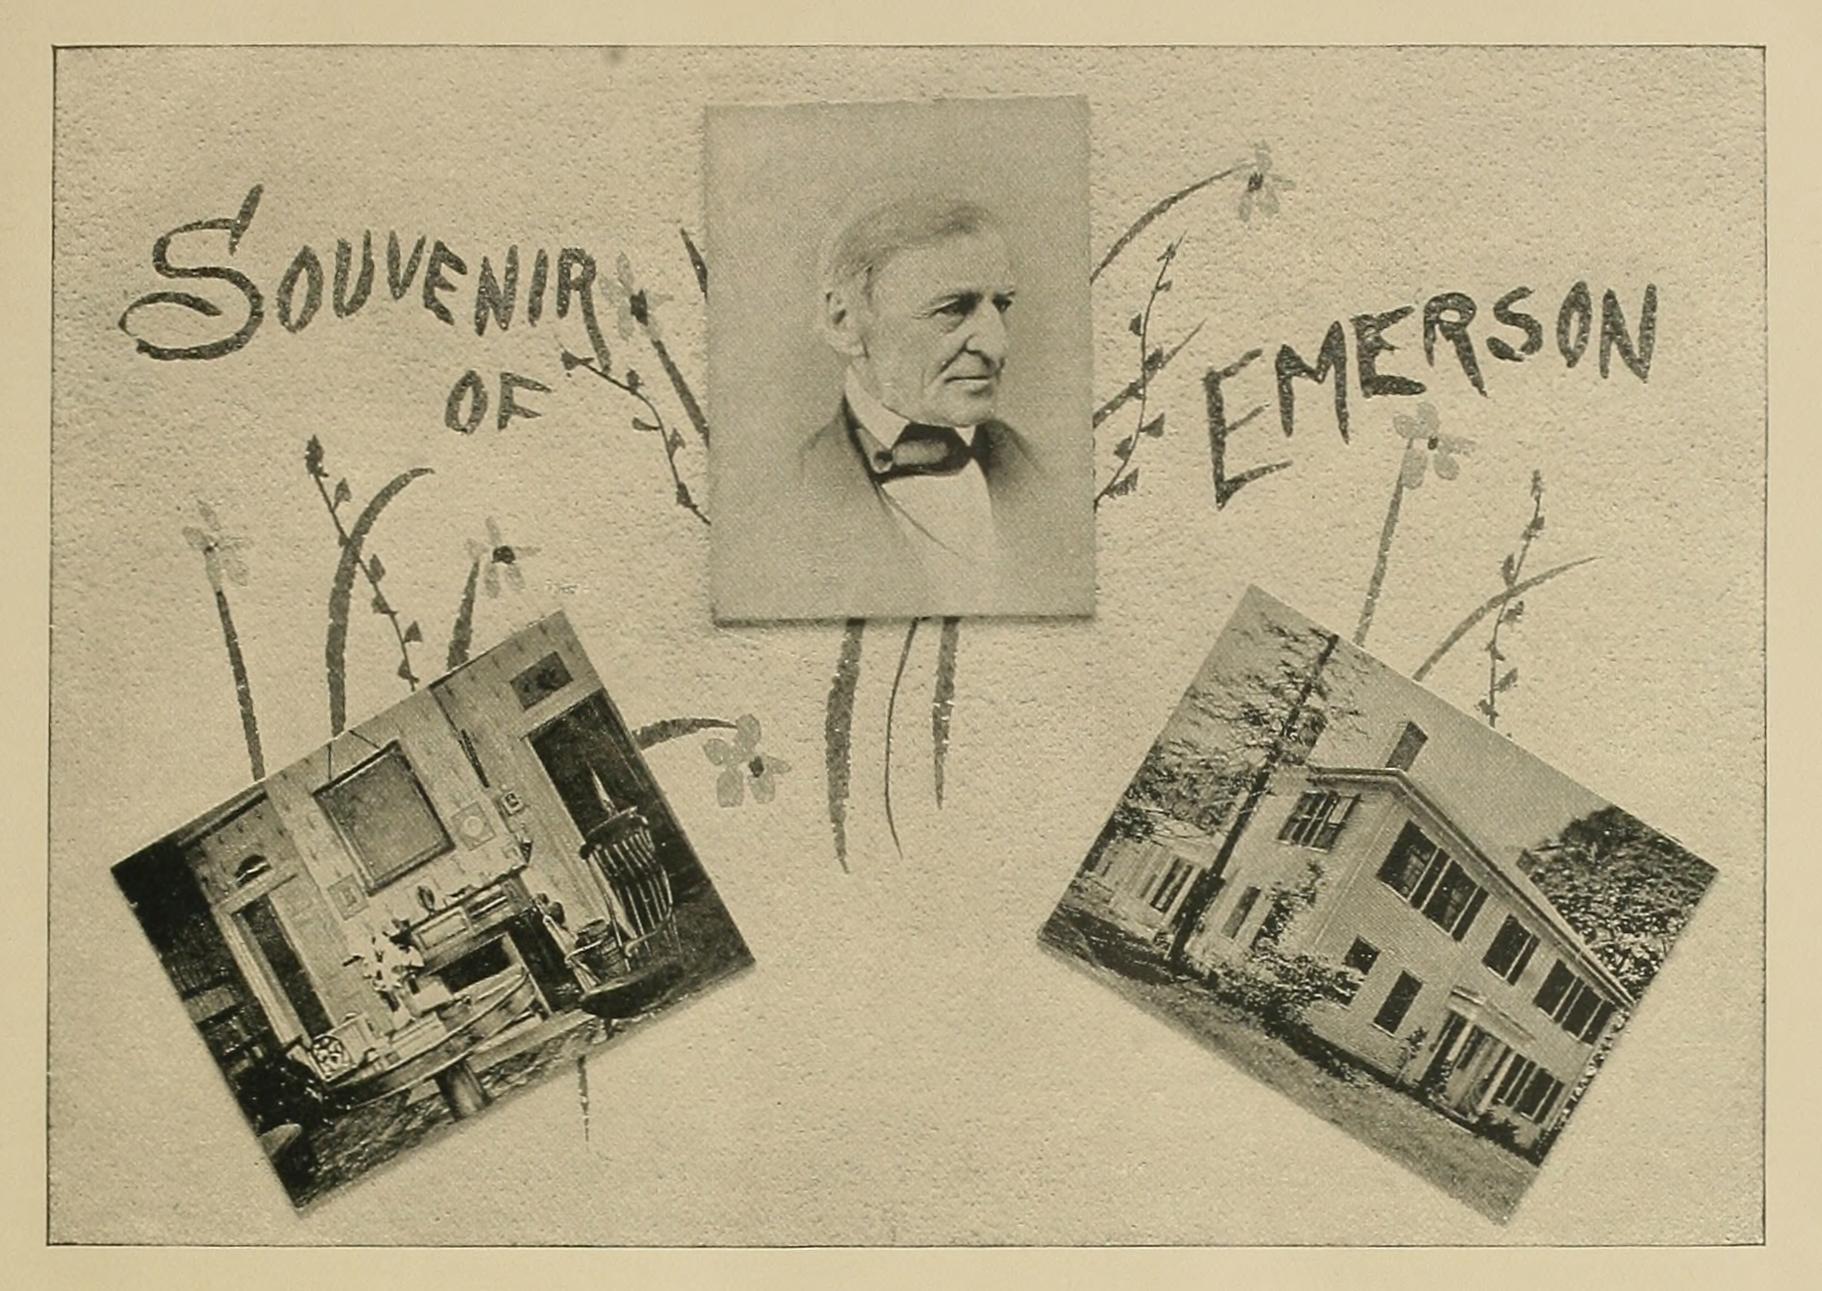 SOUVENIR
OF
EMERSON